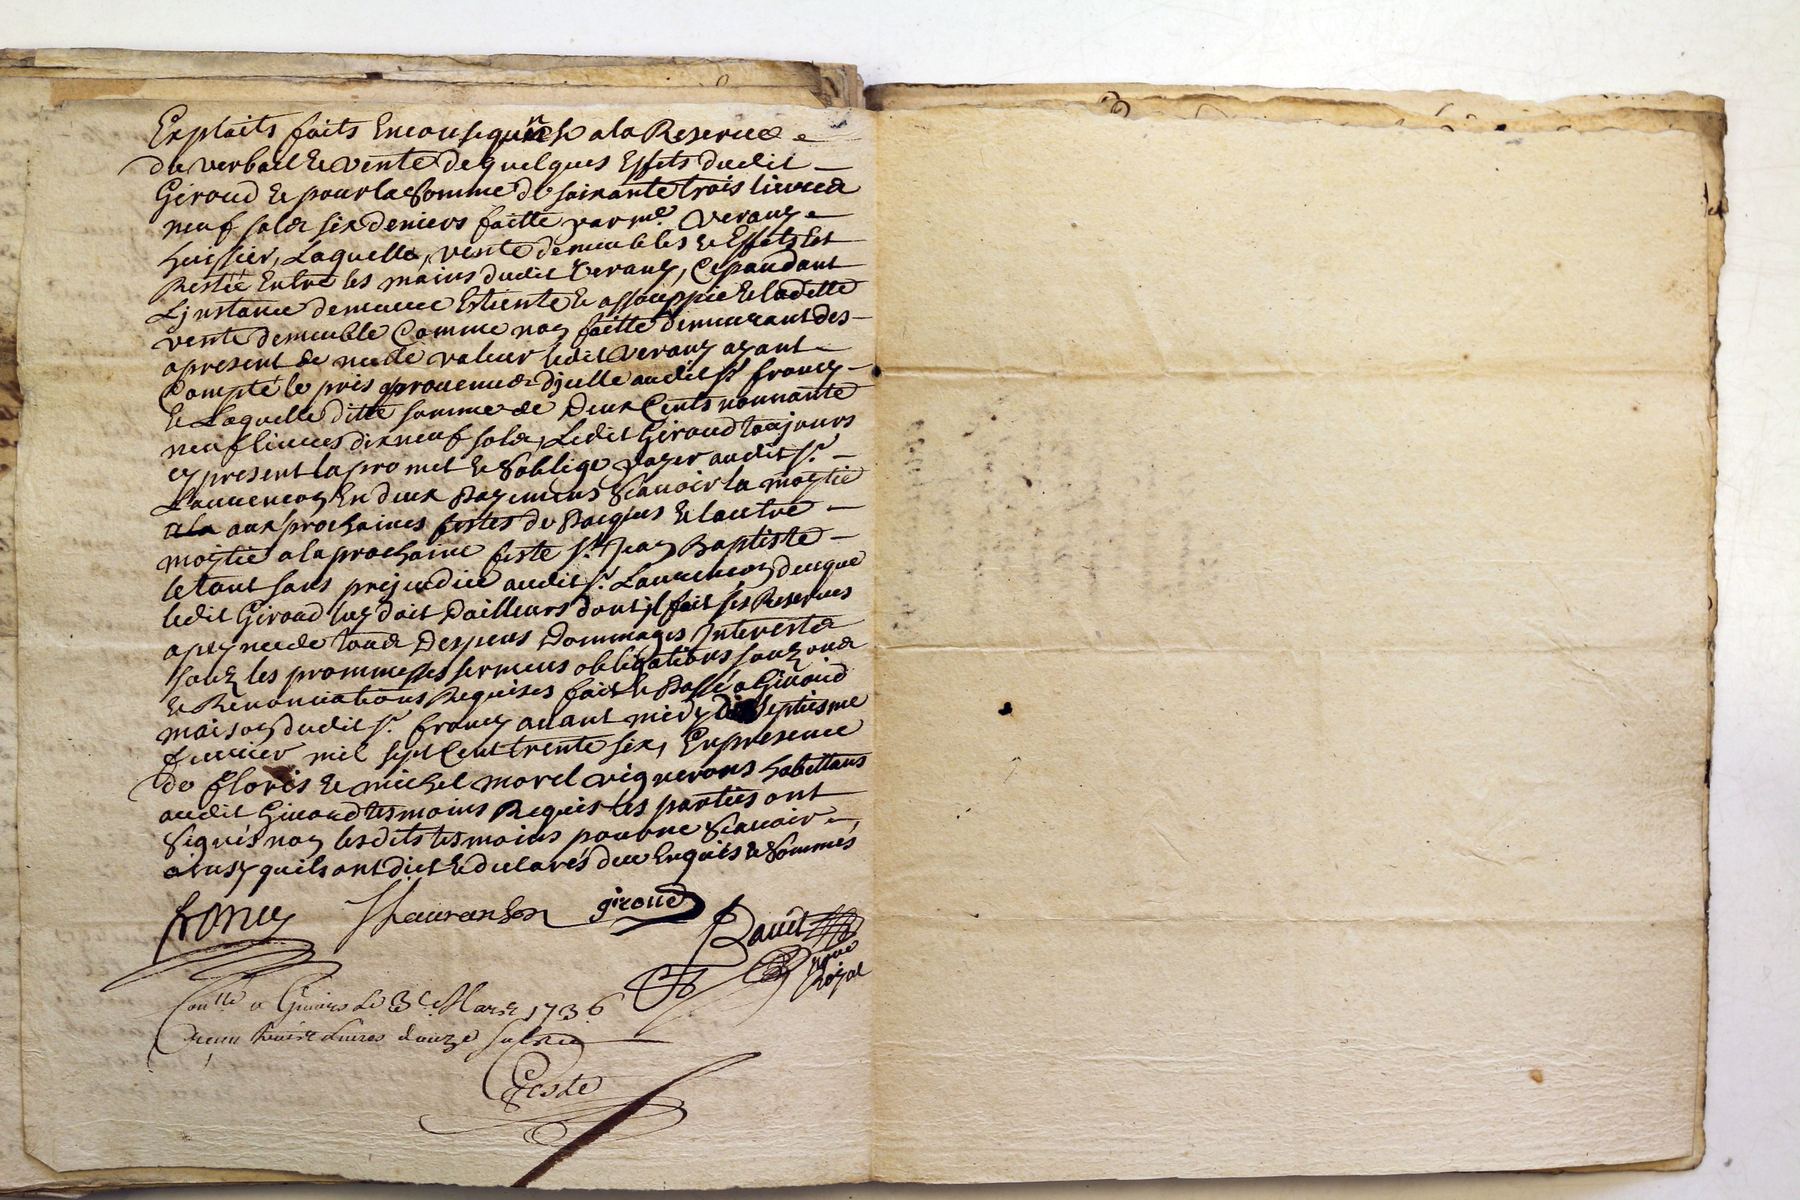 Exploits faits Enconsequence ala Reserve
du verbail de vente de quelques Effets dudit
Giroud & pour la Somme de soixante trois livres
neuf sols six deniers faitte par me. Verany
huissier, Laquelle, vente de meubles & Effets Est
Restée Entre les mains dudit Verany, Cependant
Linstance demeure Esteinte & assoupie & ladette
vente de meuble Comme non faitte demeurant des
apresent de nulle valeur ledit Verany ayant
Compté le pris provenus dicelle audit sr. francy
& Laquelle ditte somme de Deux Cents nonnante
neuf livres dixneuf sols, Ledit Giroud toujours
cy present la promet & Soblige payer audit sr.
Laurencon En deux Payemens Scauoir la moytié
aux prochaines festes de Pacques & lautre
moytié ala prochaine feste st. Jean Baptiste
letout sans prejudice audit sr. Laurencon deceque
ledit Giroud luy doit Dailleurs dont jl fait ses Reserves
apeyne de tous Despens Dommages Interests
souz les prommesses sermens obligations
& Renonciations Requises fait & Passé a Giuord
maison dudit sr. francy auant midy septiesme
feurier mil sept Cent trente six, En presence
de floris & michel morel vignerons habittans
audit Giuord tesmoins Requis les parties ont
Signés non lesdits tesmoins pour ne Scauoir
ainsy quils ont dict & declarés deue Enquis & Sommés
francy Lauranson giroud
Bauit
nore
Royal
Conlle a Giuors le 3e. Mars 1736
Receu livres douze sols
Geste